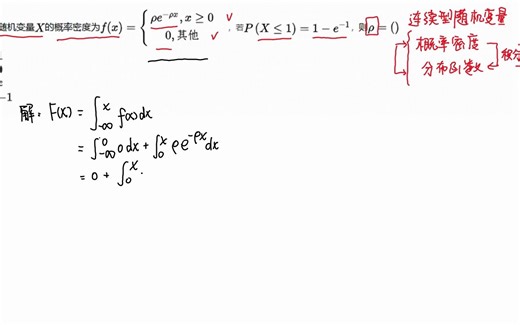 随机变量X的概率密度为f(x) = { ρe^{-ρx}, x ≥ 0 ∨
0, 其他 ∨ , 若P(X ≤ 1) = 1 − e^{-1}, 则ρ = ()
连续型随机变量
概率密度
分布函数
积分
−1
解: F(x) = ∫_{-∞}^{x} f(x)dx
= ∫_{-∞}^{0} 0 dx + ∫_{0}^{x} ρe^{-ρx} dx
= 0 + ∫_{0}^{x} .